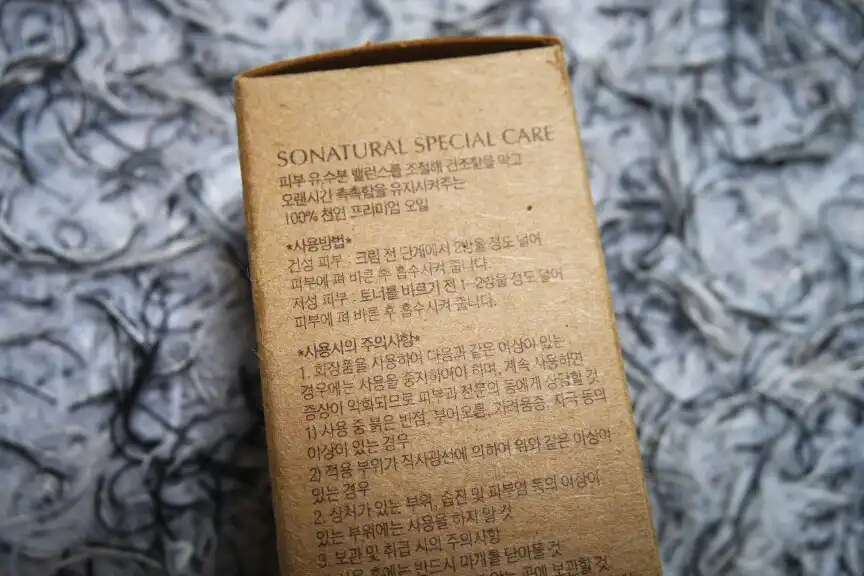 SONATURAL SPECIAL CARE
피부 유,수분 밸런스를 조절해 건조함을 막고
오랜시간 촉촉함을 유지시켜주는
100% 천연 프리미엄 오일
*사용방법*
건성 피부 : 크림 전 단계에서 2방울 정도 덜어
피부에 펴 바른 후 흡수시켜 줍니다.
지성 피부 : 토너를 바르기 전 1~2방울 정도 덜어
피부에 펴 바른 후 흡수시켜 줍니다.
*사용시의 주의사항*
1. 화장품을 사용하여 다음과 같은 이상이 있는
경우에는 사용을 중지하여야 하며, 계속 사용하면
증상이 악화되므로 피부과 전문의 등에게 상담할 것
1) 사용 중 붉은 반점, 부어오름, 가려움증, 자극 등의
이상이 있는 경우
2) 적용 부위가 직사광선에 의하여 위와 같은 이상이
있는 경우
2. 상처가 있는 부위, 습진 및 피부염 등의 이상이
있는 부위에는 사용을 하지 말 것
3. 보관 및 취급 시의 주의사항
사용 후에는 반드시 마개를 닫아둘 것
곳에 보관할 것